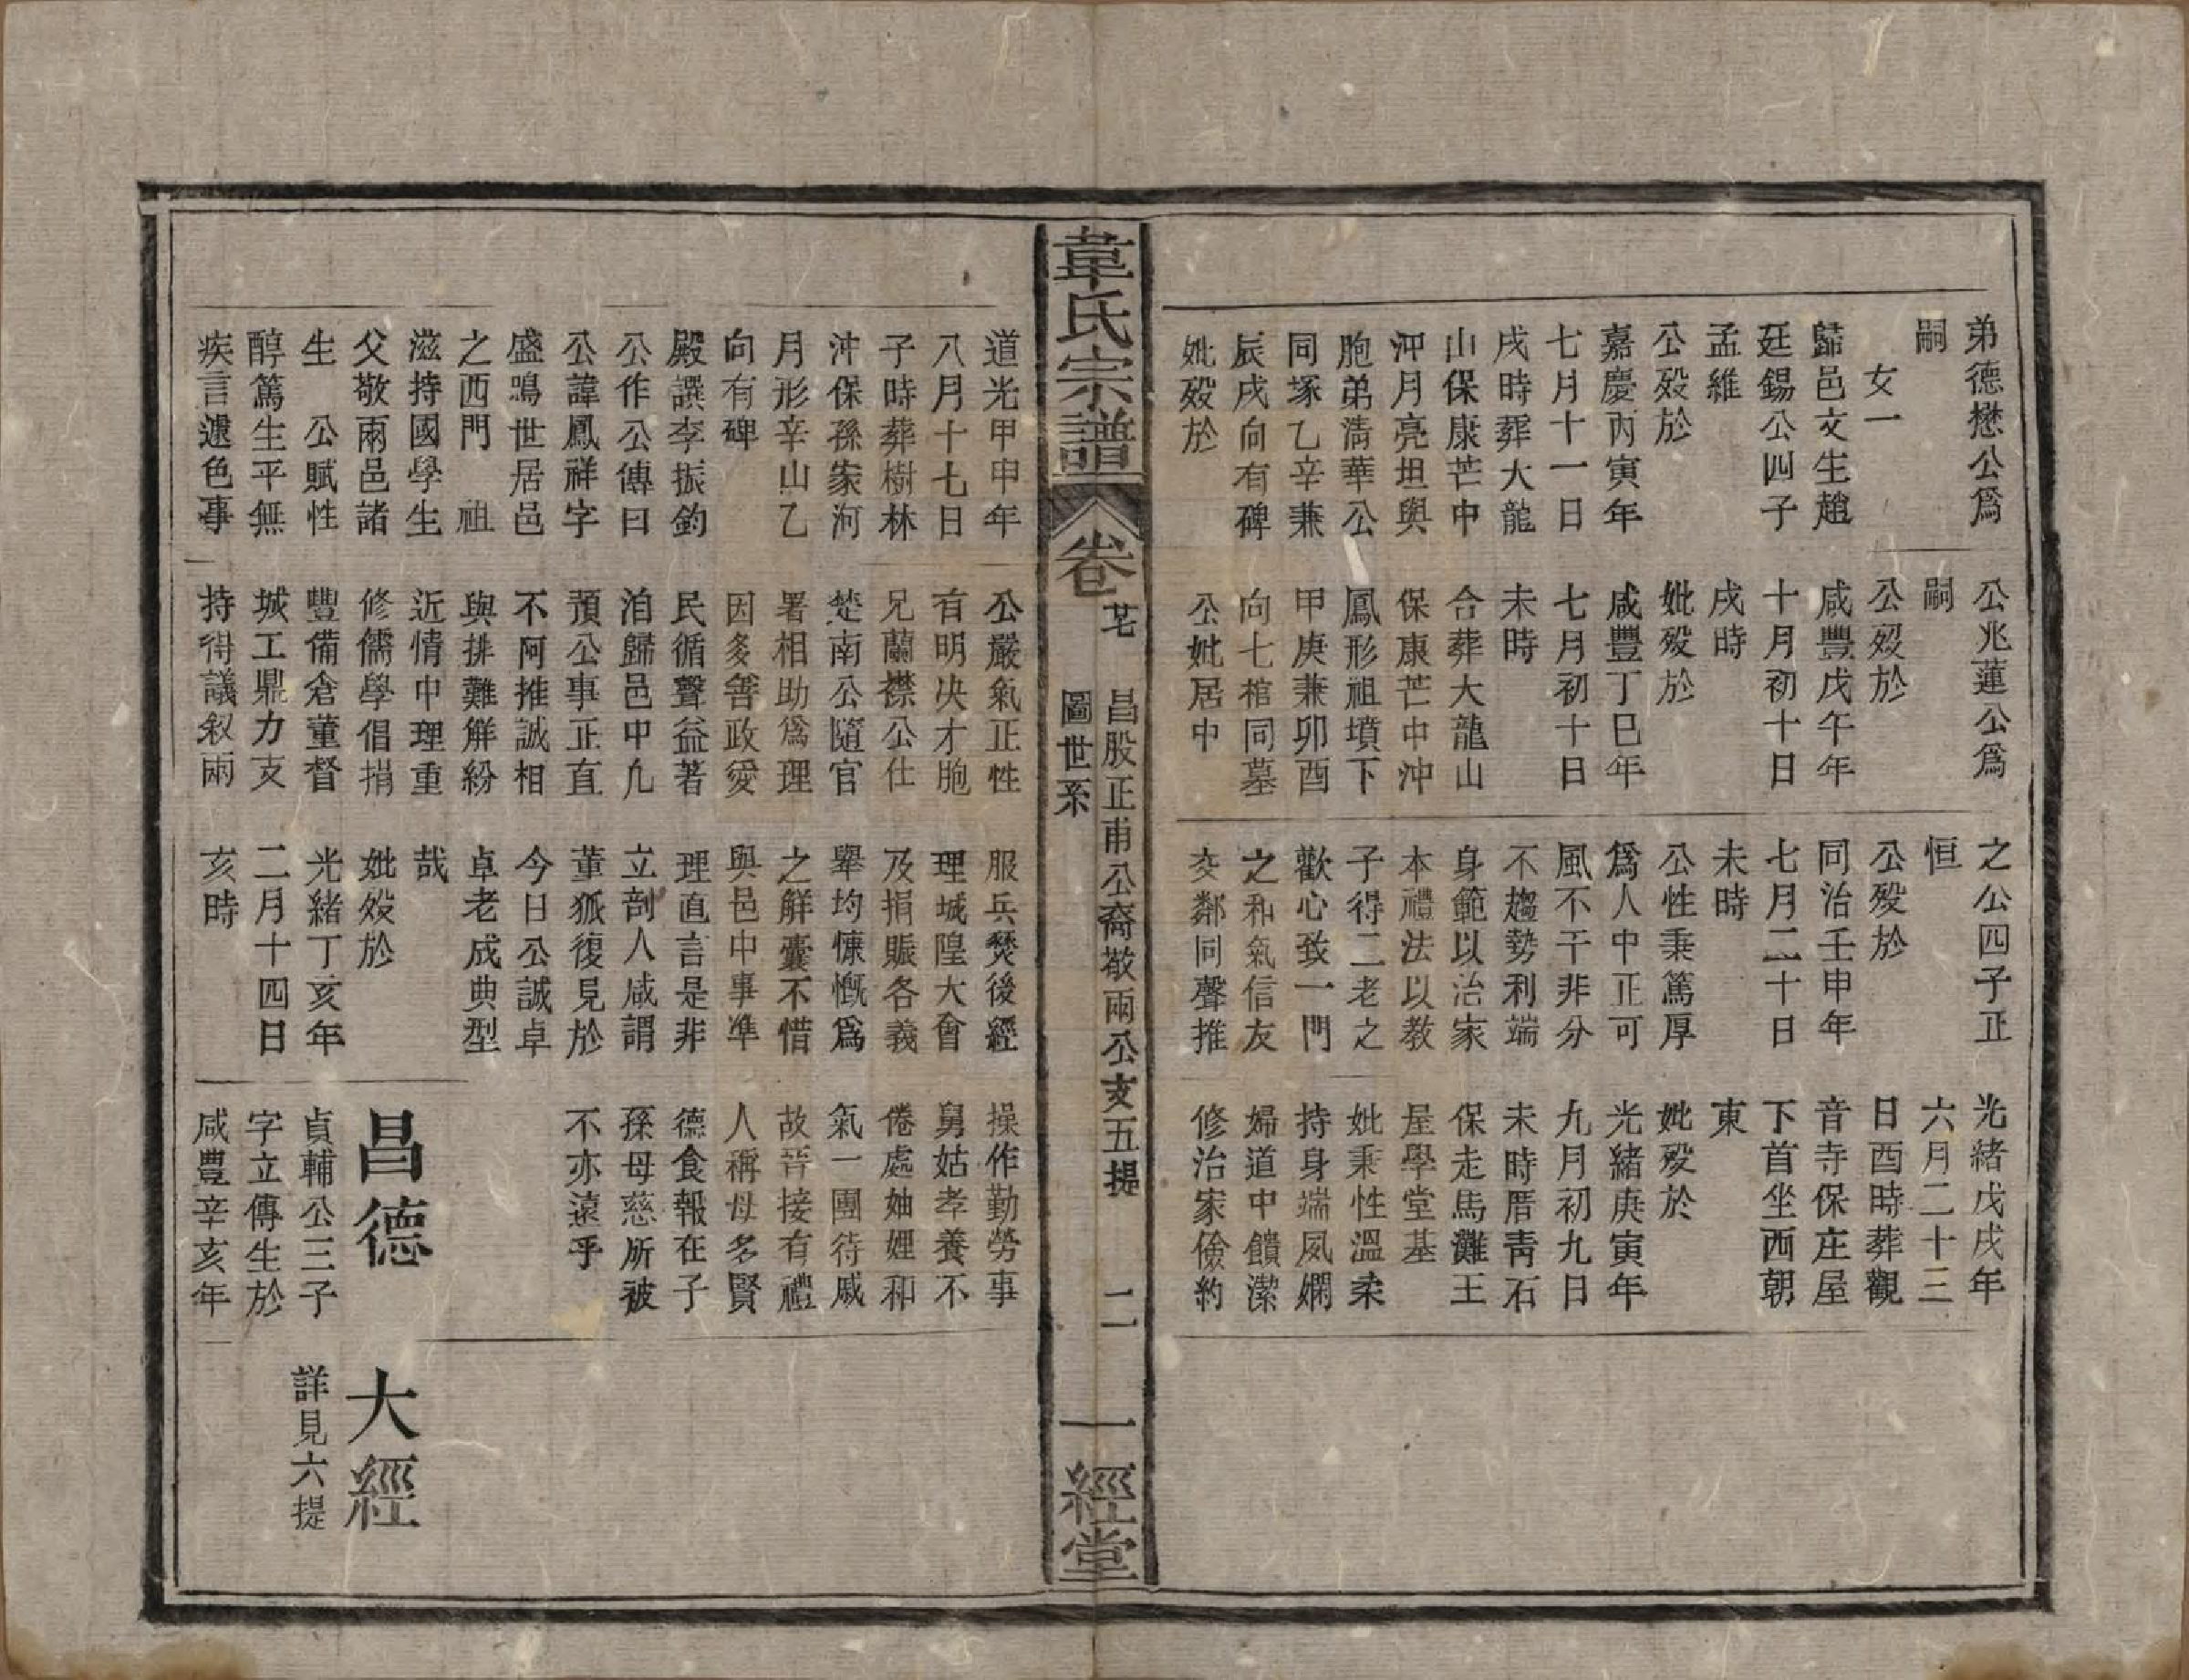 弟德懋公爲
嗣
女一
歸邑文生趙
廷錫公四子
孟維
公歿於
嘉慶丙寅年
七月十一日
戌時葬大龍
山保康芒中
沖月亮坦與
胞弟淸華公
同塚乙辛兼
辰戌向有碑
妣歿於
公兆蓮公爲
嗣
公歿於
咸豐戊午年
十月初十日
戌時
妣歿於
咸豐丁巳年
七月初十日
未時
合葬大龍山
保康芒中沖
鳳形祖墳下
甲庚兼卯酉
向七棺同墓
公妣居中
之公四子正
恒
公歿於
同治壬申年
七月二十日
未時
公性秉篤厚
爲人中正可
風不干非分
不趨勢利端
身範以治家
本禮法以教
子得二老之
歡心致一門
之和氣信友
交鄰同聲推
光緒戊戌年
六月二十三
日酉時葬觀
音寺保庄屋
下首坐西朝
東
妣歿於
光緒庚寅年
九月初九日
未時厝靑石
保走馬灘王
屋學堂基
妣秉性溫柔
持身端凤嫻
婦道中饋潔
修治家儉約
韋氏宗譜
卷
昌股正甫公裔敬兩公支五提
圖世系
二
一經堂
道光甲申年
八月十七日
子時葬樹林
沖保孫家河
月形辛山乙
向有碑
殿譔李振鈞
公作公傳曰
公諱鳳祥字
盛鳴世居邑
之西門　祖
滋持國學生
父敬兩邑諸
生　公賦性
醇篤生平無
疾言遽色事
公嚴氣正性
有明决才胞
兄蘭襟公仕
楚南公隨官
署相助爲理
因多善政愛
民循聲益著
洎歸邑中凢
預公事正直
不阿推誠相
與排難解紛
近情中理重
修儒學倡捐
豐備倉董督
城工鼎力支
持得議叙兩
服兵燹後經
理城隍大會
及捐賑各義
舉均慷慨爲
之解囊不惜
與邑中事準
理直言是非
立剖人咸謂
董狐復見於
今日公誠卓
卓老成典型
哉
妣歿於
光緒丁亥年
二月十四日
亥時
操作勤勞事
舅姑孝養不
倦處妯娌和
氣一團待戚
故晉接有禮
人稱母多賢
德食報在子
孫母慈所被
不亦遠乎
昌德
貞輔公三子
字立傳生於
咸豐辛亥年
大經
詳見六提